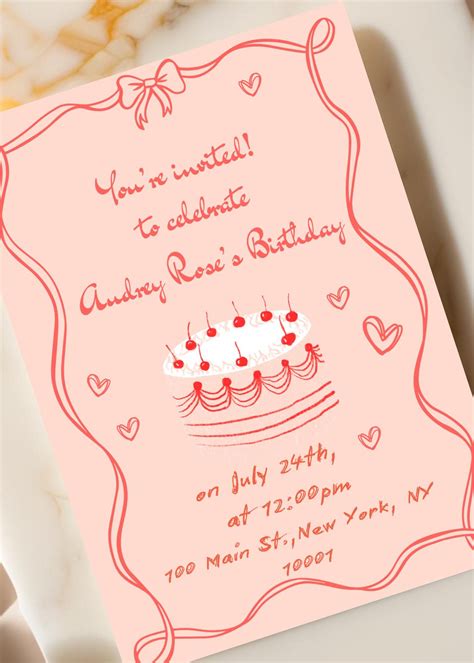 You're invited!
to celebrate
Audrey Rose's Birthday
on July 24th,
at 12:00pm
100 Main St.,New York, NY
10001